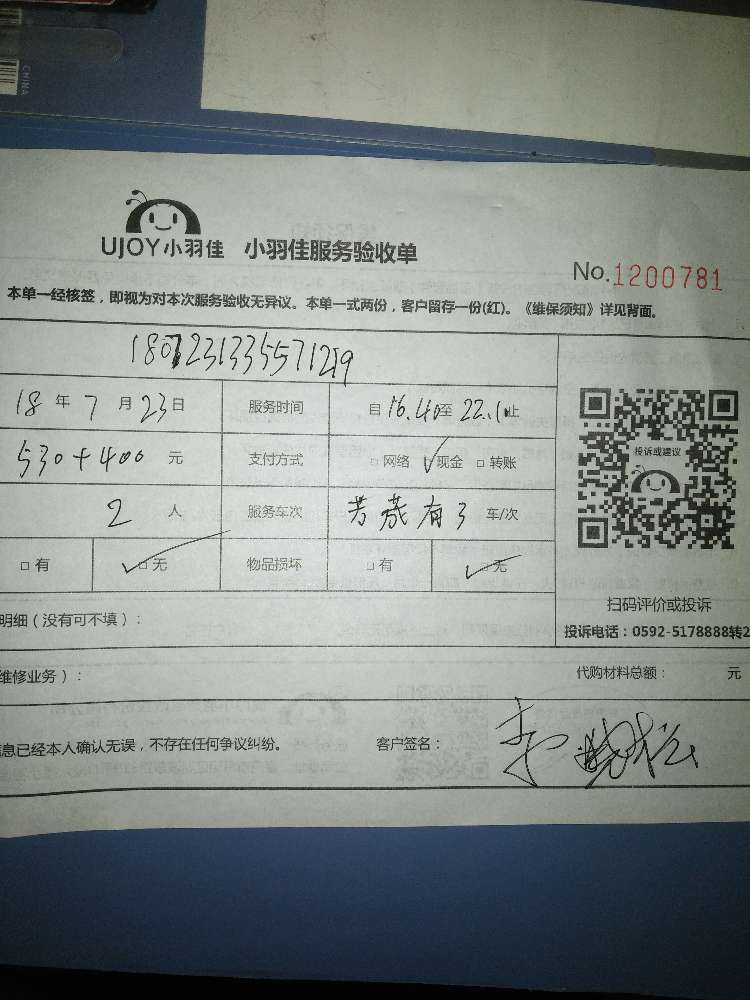 CHINA
UJOY小羽佳 小羽佳服务验收单
No.1200781
本单一经核签，即视为对本次服务验收无异议。本单一式两份，客户留存一份(红)。《维保须知》详见背面。
18 年 7 月 23 日 服务时间 自 16.40 至 22.1 止
530+400 元 支付方式 □网络 □现金 □转账
投诉或建议
2 人 服务车次 车/次
□有 □无 物品损坏 □有 □无
扫码评价或投诉
明细（没有可不填）：
投诉电话：0592-5178888转2
维修业务）：
代购材料总额： 元
息已经本人确认无误，不存在任何争议纠纷。 客户签名：